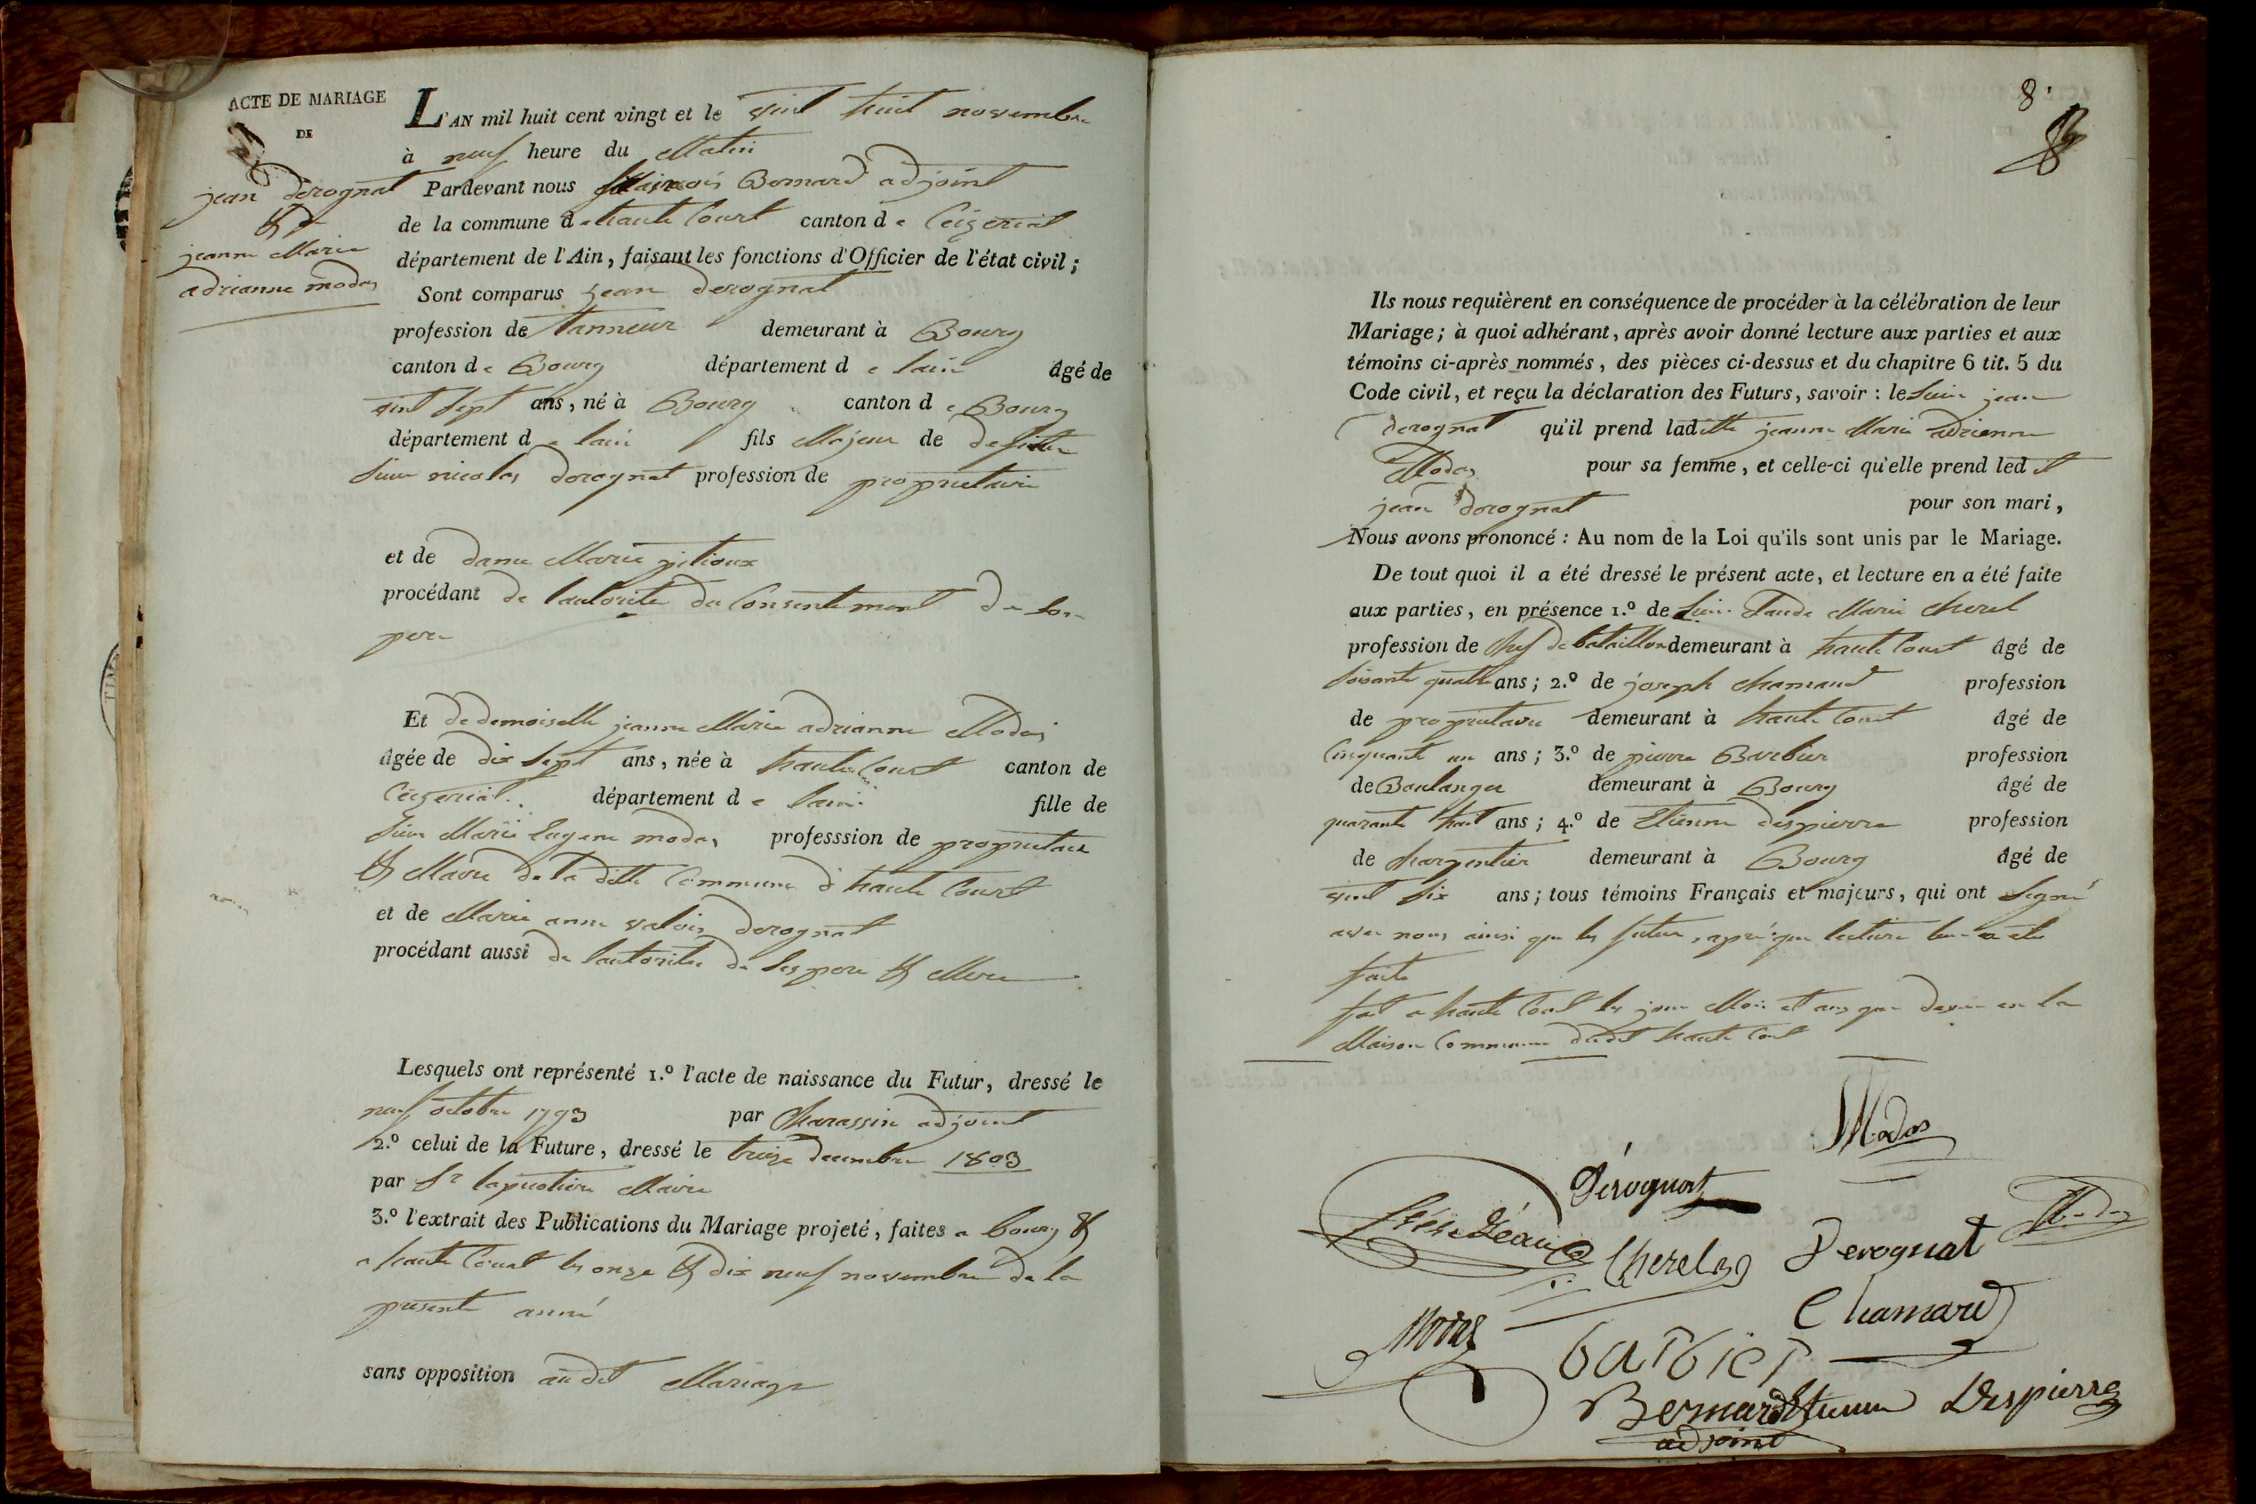 ACTE DE MARIAGE
DE
jean derognat
&
jeanne Marie
adrianne modas
L'AN mil huit cent vingt et le vint huit novembre
à neuf heure du Matin
Pardevant nous Bernard adjoint
de la commune de haute Court canton de Ceizeriat
département de l'Ain, faisant les fonctions d'Officier de l'état civil;
Sont comparus jean derognat
profession de tanneur demeurant à Bourg
canton de Bourg département de lain âgé de
vint sept ans, né à Bourg canton de Bourg
département de lain fils Majeur de
sieur nicolas derognat profession de proprietaire
et de dame Marie
procédant de lautorité du Consentement de son
pere
Et de demoiselle jeanne Marie adrianne Modas
âgée de dix sept ans, née à haute Court canton de
Ceizeriat département de lain fille de
sieur Marie Eugene modas professsion de proprietaire
& Maire de la ditte Commune d'haute Court
et de Marie anne valois derognat
procédant aussi de lautorité de ses pere & Mere
Lesquels ont représenté 1.º l'acte de naissance du Futur, dressé le
neuf octobre 1793 par Charassin adjoint
2.º celui de la Future, dressé le treize decembre 1803
par Sr Maire
3.º l'extrait des Publications du Mariage projeté, faites a bourg &
a haute Court les onze & dix neuf novembre de la
presente anné
sans opposition au dit Mariage
8.
Ils nous requièrent en conséquence de procéder à la célébration de leur
Mariage; à quoi adhérant, après avoir donné lecture aux parties et aux
témoins ci-après nommés, des pièces ci-dessus et du chapitre 6 tit. 5 du
Code civil, et reçu la déclaration des Futurs, savoir: le sieur jean
derognat qu'il prend laditte jeanne Marie adrienne
Modas pour sa femme, et celle-ci qu'elle prend ledit
jean derognat pour son mari,
Nous avons prononcé: Au nom de la Loi qu'ils sont unis par le Mariage.
De tout quoi il a été dressé le présent acte, et lecture en a été faite
aux parties, en présence 1.º de sieur Claude Marie Cherel
profession de Chef de bataillon demeurant à haute Court âgé de
soisante quatre ans; 2.º de joseph chamard profession
de proprietaire demeurant à haute Court âgé de
Cinquante un ans; 3.º de pierre Barbier profession
de Boulanger demeurant à Bourg âgé de
quarante huit ans; 4.º de Etienne despierre profession
de charpentier demeurant à Bourg âgé de
vint six ans; tous témoins Français et majeurs, qui ont signé
avec nous ainsi que les futurs, apré que lecture leur a eté
faite
fait a haute Court les jour Mois et ans que dessus en la
Maison Commune dudit haute Court
Modas
Dérognat
Modas
Cherel
Derognat
Chamard
Modas
barbier
Bernard Etienne Despierre
adjoint